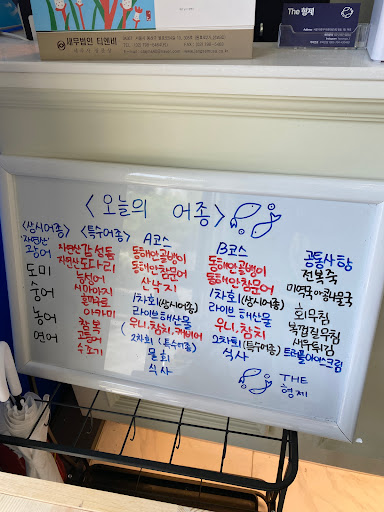 세무법인 티앤비
The 형제
< 오늘의 어종 >
<상시어종>
"자연산"
광어
도미
숭어
농어
연어
<특수어종>
자연산감성돔
자연산도다리
능성어
시마아지
흰꼴뚜기
아까미
참복
고등어
수조기
A코스
동해안골뱅이
동해안참문어
산낙지
1차회(상시어종)
라이브해산물
(우니,참치,캐비어
2차회 (특수어종)
물회
식사
B코스
동해안골뱅이
동해안참문어
1차회(상시어종)
라이브해산물
우니,참치
2차회(특수어종)
식사
공통사항
전복죽
미역국or콩나물국
회무침
새우튀김
트러플아이스크림
THE
형제